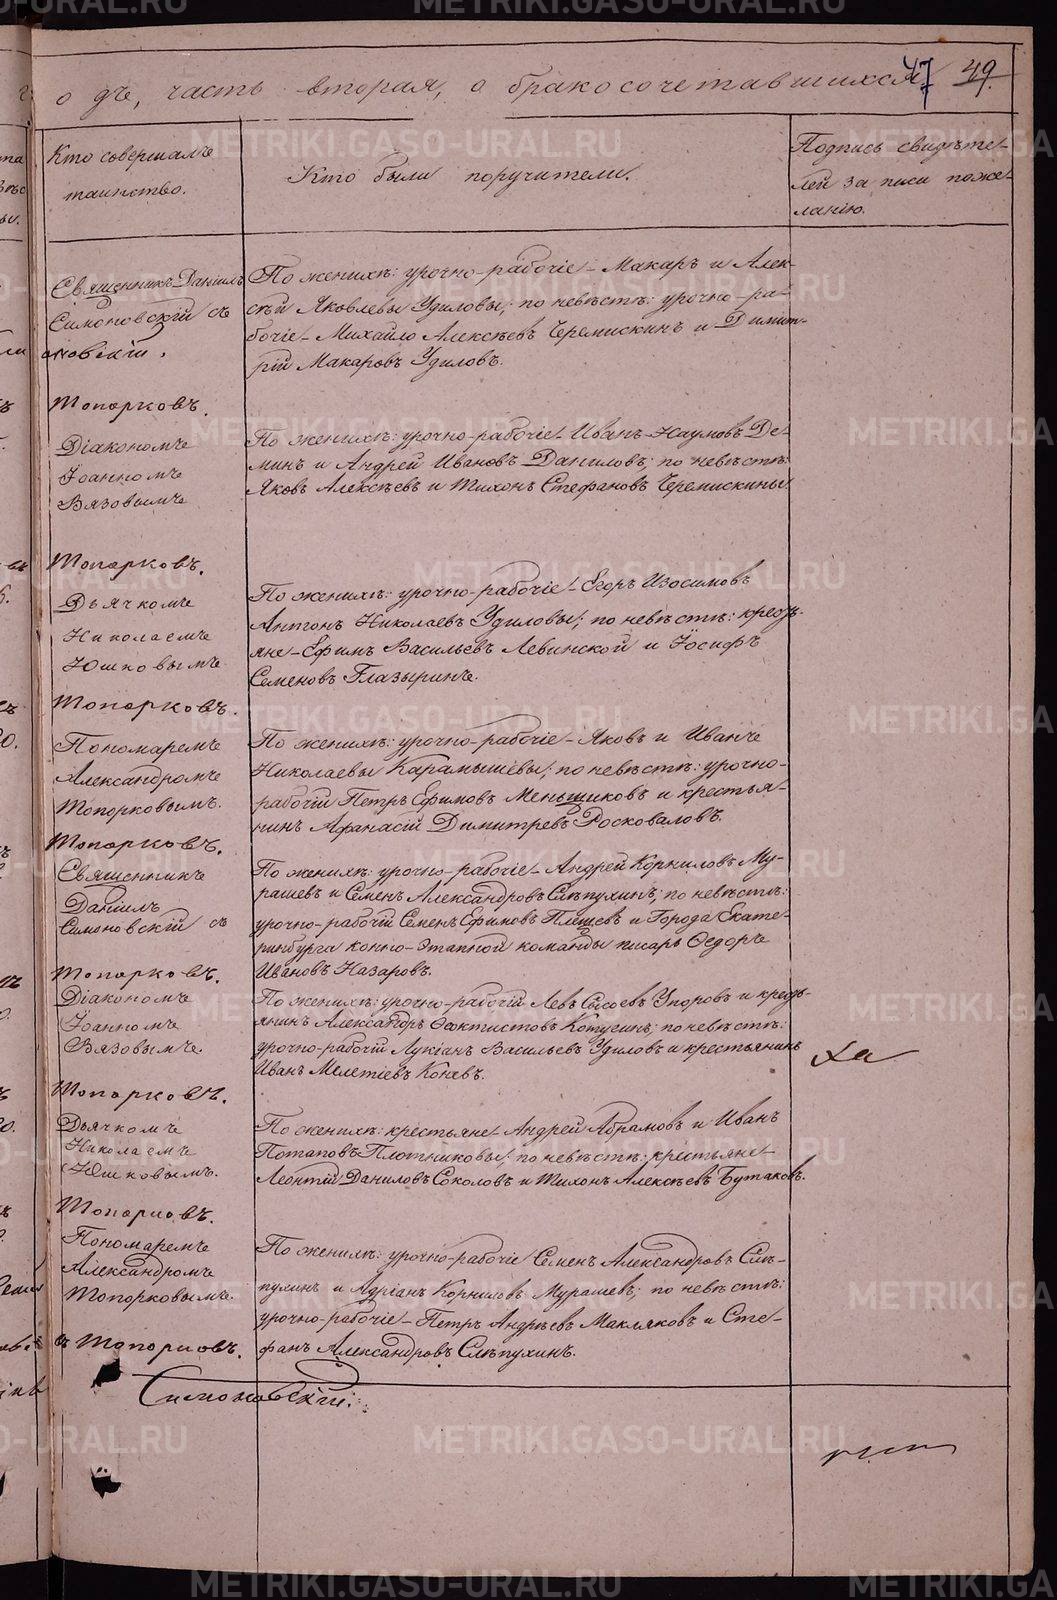 о дѣ, часть вторая, о бракосочетавшихся
47 49.
Кто совершалъ
таинство.
Кто были поручители.
Подпись свидѣте-
лей записи по же-
ланію.
Священникъ Даніилъ
Симоновскій съ
По женихѣ: урочно-рабочіе – Макаръ и Алек-
сѣй Яковлевы Удиловы; по невѣстѣ: урочно-ра-
бочіе – Михайло Алексѣевъ Черемискинъ и Димит-
рій Макаровъ Удиловъ.
Топорковъ.
Діакономъ
Іоанномъ
Вязовымъ
По женихѣ: урочно-рабочіе – Иванъ Наумовъ Де-
минъ и Андрей Ивановъ Даниловъ; по невѣстѣ:
Яковъ Алексѣевъ и Тихонъ Стефановъ Черемискины.
Топорковъ.
Дьячкомъ
Николаемъ
Юшковымъ
По женихѣ: урочно-рабочіе – Егоръ Изосимовъ
Антонъ Николаевъ Удиловы; по невѣстѣ: кресть-
яне – Ефимъ Васильевъ Левинской и Іосифъ
Семеновъ Глазыринъ.
Топорковъ.
Пономаремъ
Александромъ
Топорковымъ.
По женихѣ: урочно-рабочіе – Яковъ и Иванъ
Николаевы Карамышевы; по невѣстѣ: урочно-
рабочій Петръ Ефимовъ Меньшиковъ и крестья-
нинъ Афанасій Димитревъ Росковаловъ.
Топорковъ.
Священникъ
Даніилъ
Симоновскій съ
По женихѣ: урочно-рабочіе – Андрей Корниловъ Му-
рашевъ и Семенъ Александровъ Слѣпухинъ; по невѣстѣ:
урочно-рабочій Семенъ Ефимовъ Плещевъ и Города Екате-
ринбурга конно-этапной команды писарь Ѳедоръ
Ивановъ Назаровъ.
Топорковъ.
Діакономъ
Іоанномъ
Вязовымъ.
По женихѣ: урочно-рабочій Левъ Сысоевъ Упоровъ и кресть-
янинъ Александръ Ѳеоктистовъ Котугинъ; по невѣстѣ:
урочно-рабочій Лукіанъ Васильевъ Удиловъ и крестьянинъ
Иванъ Мелетіевъ Коневъ.
Топорковъ.
Дьячкомъ
Николаемъ
Юшковымъ.
По женихѣ: крестьяне – Андрей Абрамовъ и Иванъ
Потаповъ Плотниковы; по невѣстѣ: крестьяне –
Леонтій Даниловъ Соколовъ и Тихонъ Алексѣевъ Бутаковъ.
Топорковъ.
Пономаремъ
Александромъ
Топорковымъ.
По женихѣ: урочно-рабочіе Семенъ Александровъ Слѣ-
пухинъ и Адріанъ Корниловъ Мурашевъ; по невѣстѣ:
урочно-рабочіе – Петръ Андрѣевъ Макляковъ и Сте-
фанъ Александровъ Слѣпухинъ.
ъ Топорковъ.
Симоновскій.
METRIKI.GASO-URAL.RU